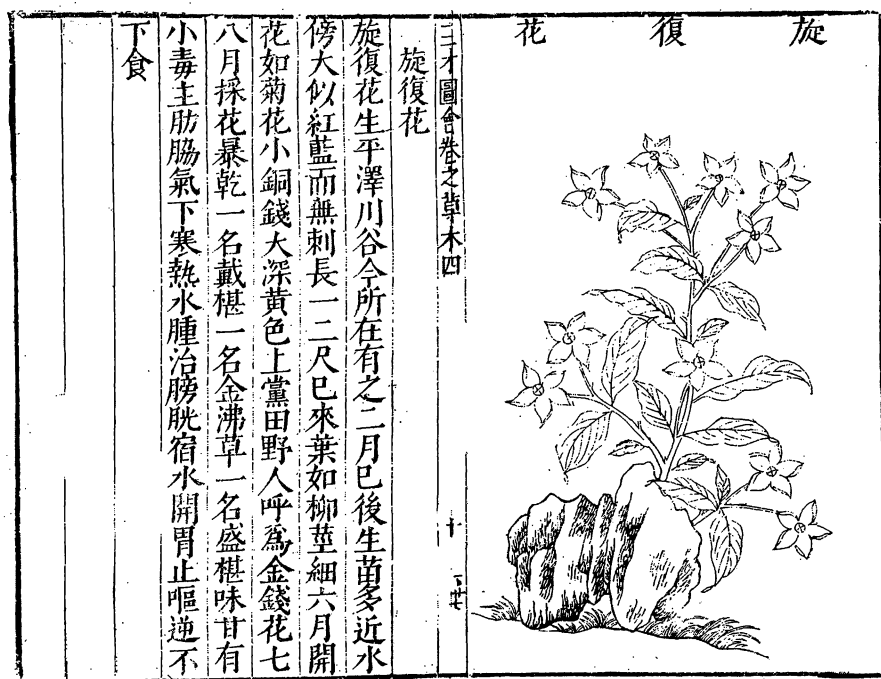 旋復花
三才圖會卷之草木四
十
旋復花
旋復花生平澤川谷今所在有之二月巳後生苗多近水
傍大似紅藍而無刺長一二尺巳來葉如柳莖細六月開
花如菊花小銅錢大深黃色上黨田野人呼爲金錢花七
八月採花暴乾一名戴椹一名金沸草一名盛椹味甘有
小毒主肪脇氣下寒熱水腫治膀胱宿水開胃止嘔逆不
下食